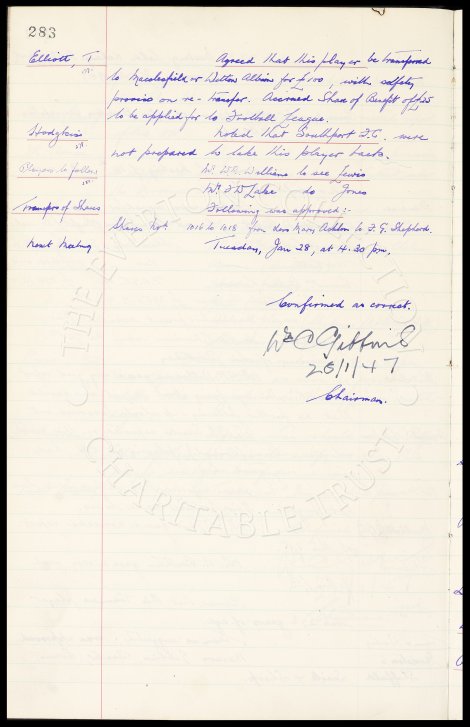 283
Elliott, T. Agreed that this player be transferred
to Macclesfield or Witton Albion for £100, with safety
proviso on re-transfer. Accrued Share of Benefit of £25
to be applied for to Football League.
Hodgkiss Noted that Southport F.C. were
not prepared to take this player back.
Players to follow Mr. W.R. Williams to see Lewis
Mr. T.W. do Jones
Transfers of Shares Following was approved:-
Shares Nos 1016 to 1018 from Mary Ashton to F.G. Shepherd.
Next Meeting Tuesday, Jan 28, at 4.30 pm.
Confirmed as correct.
Wm C Gibbins
28/1/47
Chairman.
THE EVERTON COLLECTION
CHARITABLE TRUST
©